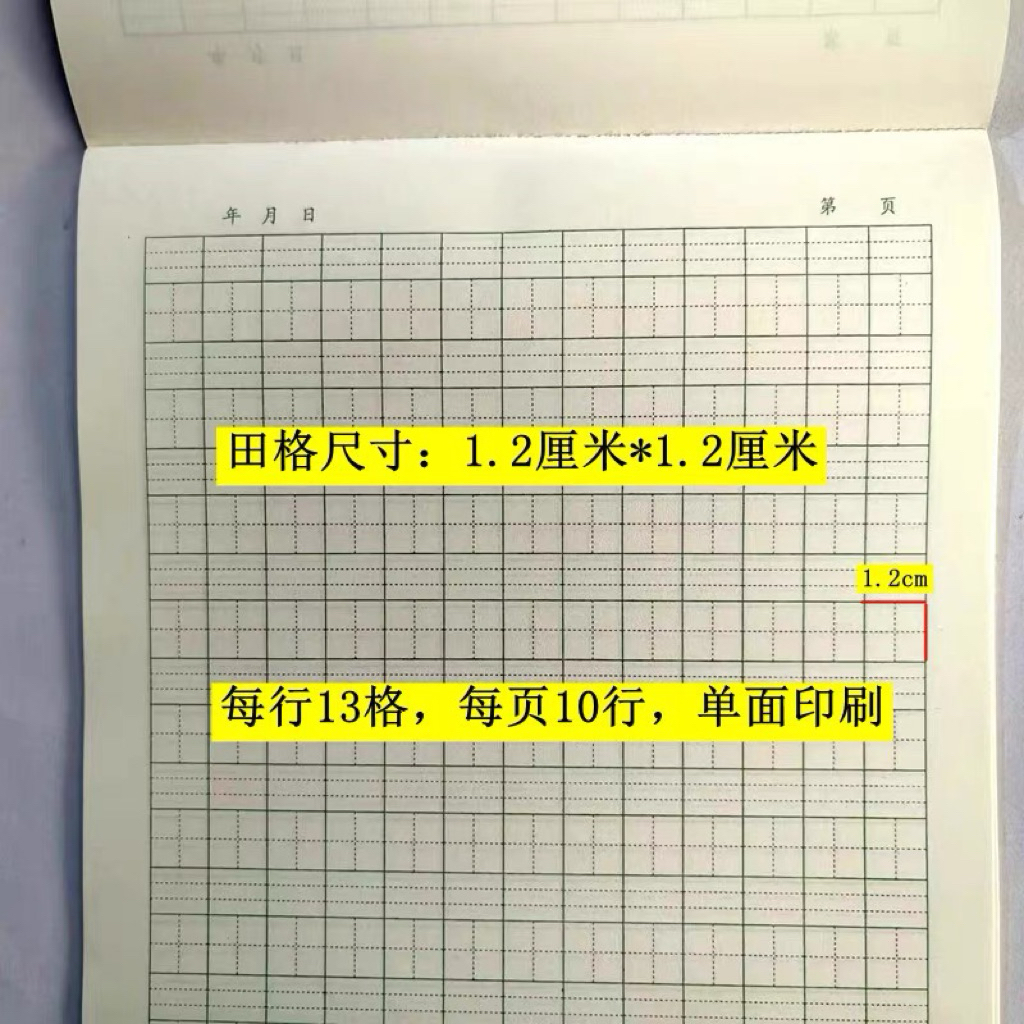 年 月 日
第 页
田格尺寸：1.2厘米*1.2厘米
1.2cm
每行13格，每页10行，单面印刷